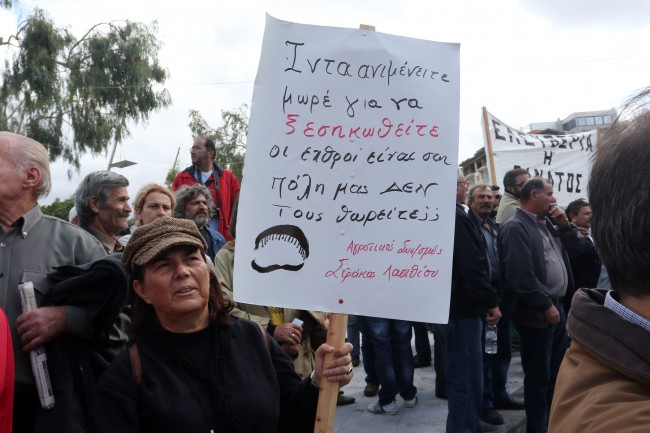 Ιντα ανιμένειτε
μωρέ για να
ξεσηκωθείτε
οι εχθροί είναι στη
πόλη μας ΔΕΝ
τους θωρείτε;;
Αγροτικός συν/σμός
Σφάκα Λασιθίου
ΕΛΕΥΘΕΡΙΑ
Η
ΘΑΝΑΤΟΣ